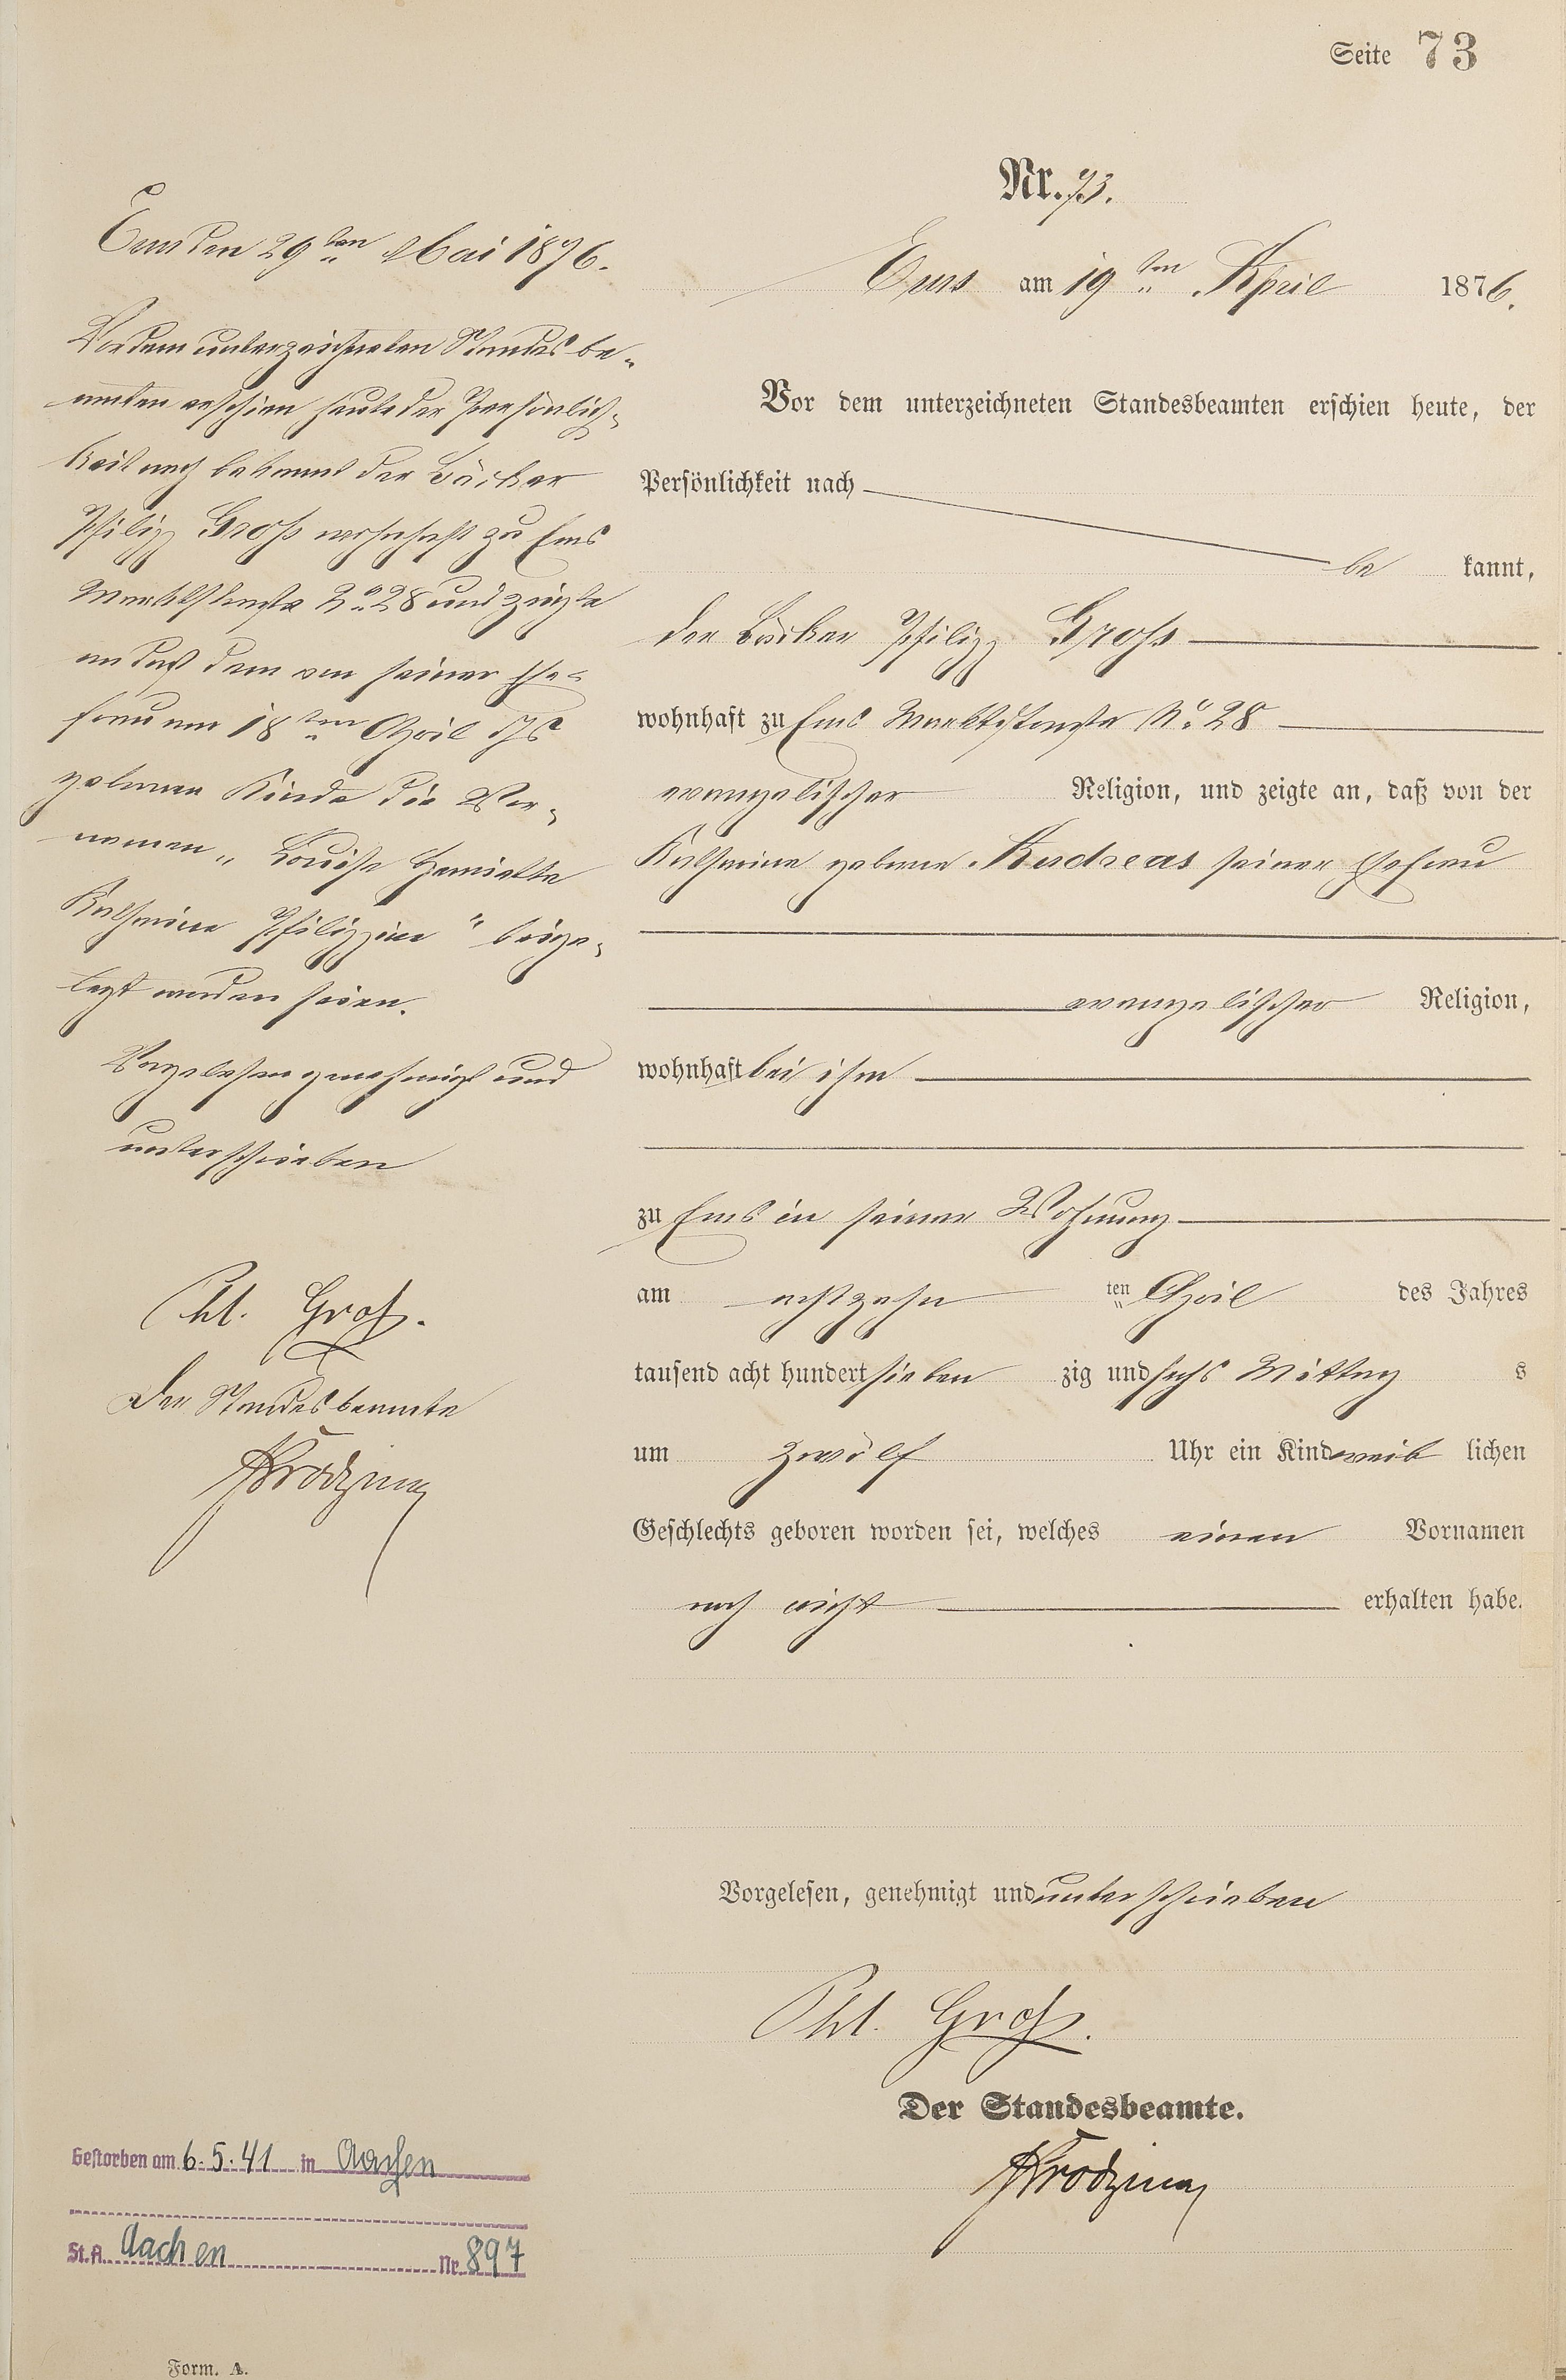 Seite 73
Nr. 73.
Ems am 19ten April 1876.
Vor dem unterzeichneten Standesbeamten erschien heute, der
Persönlichkeit nach
be kannt,
der Bäcker Philipp Gross
wohnhaft zu Ems Marktstraße No. 28
evangelischer Religion, und zeigte an, daß von der
Katharine geborne Andreas seiner Ehefrau
evangelischer Religion,
wohnhaft bei ihm
zu Ems in seiner Wohnung
am achtzehn ten April des Jahres
tausend acht hundert sieben zig und sechs Mittag s
um zwölf Uhr ein Kind weib lichen
Geschlechts geboren worden sei, welches einen Vornamen
noch nicht erhalten habe.
Vorgelesen, genehmigt und unterschrieben
Phl. Groß.
Der Standesbeamte.
Ems den 29ten Mai 1876.
Vor dem unterzeichneten Standesbe-
amten erschien heute der Persönlich-
keit nach bekannt der Bäcker
Philipp Gross wohnhaft zu Ems
Marktstraße No. 28 und zeigte
an daß dem von seiner Ehe-
frau am 18ten April djs
gebornen Kinde die Vor-
namen „Louise Henriette
Katharine Philippine" beige-
legt worden seien.
Vorgelesen genehmigt und
unterschrieben
Phl. Groß.
Der Standesbeamte
Gestorben am 6.5.41 in Aachen
St.A. Aachen Nr. 897
Form. A.